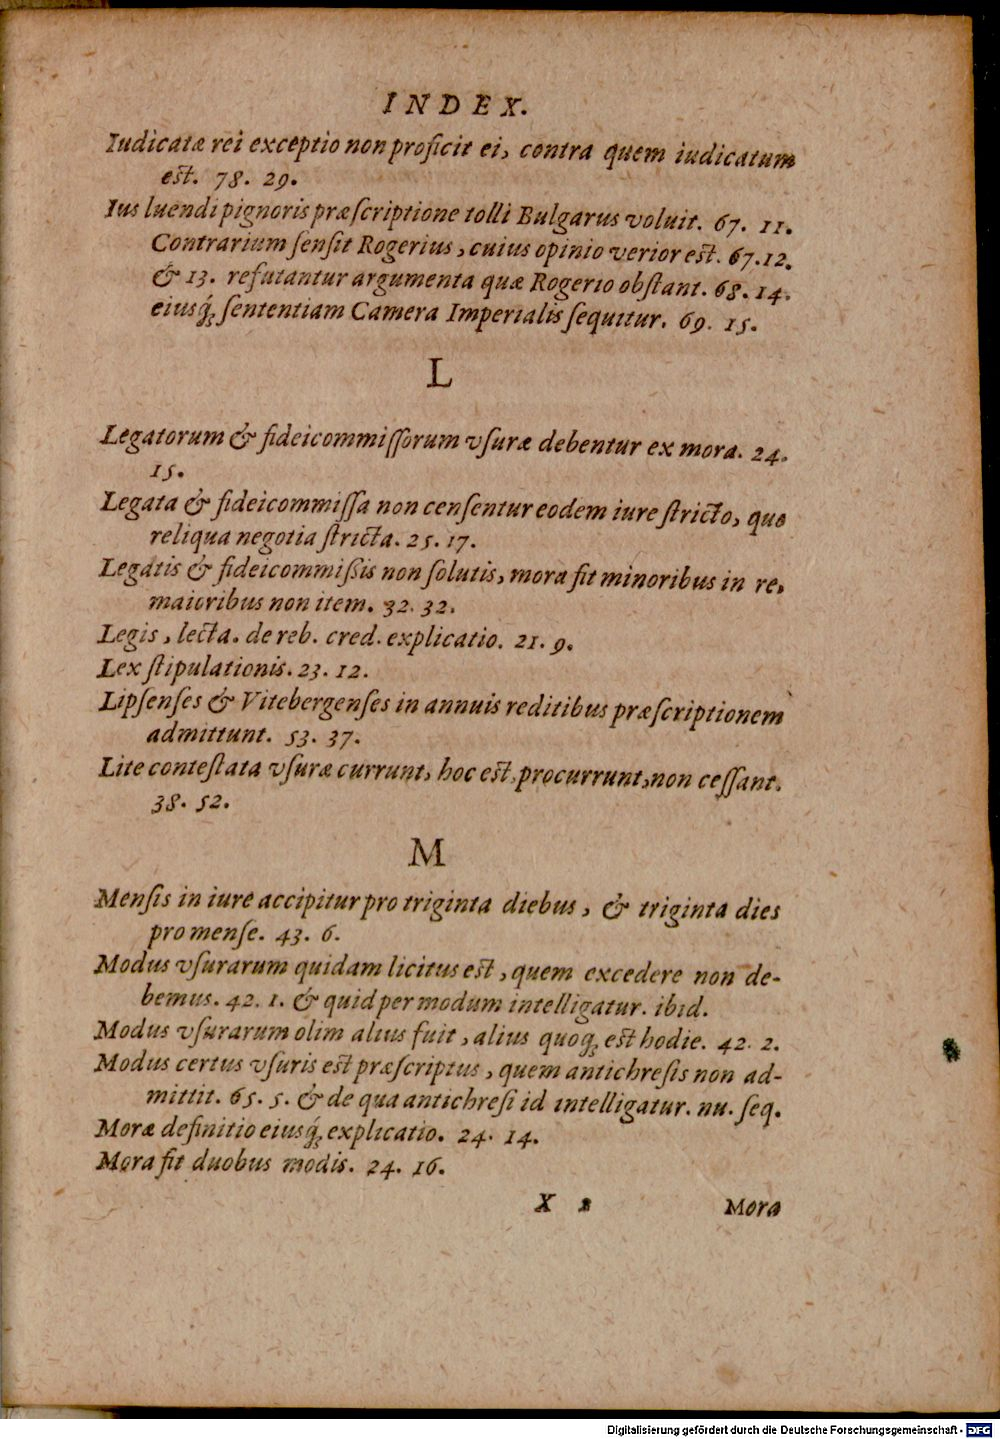 INDEX.
Iudicatæ rei exceptio non proficit ei, contra quem iudicatum
est. 78. 29.
Ius luendi pignoris præſcriptione tolli Bulgarus voluit. 67. 11.
Contrarium ſenſit Rogerius, cuius opinio verior est. 67. 12.
& 13. refutantur argumenta quæ Rogerio obſtant. 68. 14.
eiusq́ꝫ ſententiam Camera Imperialis ſequitur. 69. 15.
L
Legatorum & fideicommiſſorum vſuræ debentur ex mora. 24.
15.
Legata & fideicommiſſa non cenſentur eodem iure ſtricto, quo
reliqua negotia ſtricta. 25. 17.
Legatis & fideicommiſsis non ſolutis, mora fit minoribus in re,
maioribus non item. 32. 32.
Legis, lecta. de reb. cred. explicatio. 21. 9.
Lex ſtipulationis. 23. 12.
Lipſenſes & Vitebergenſes in annuis reditibus præſcriptionem
admittunt. 53. 37.
Lite conteſtata vſuræ currunt, hoc est, procurrunt, non ceſſant.
38. 52.
M
Menſis in iure accipitur pro triginta diebus, & triginta dies
pro menſe. 43. 6.
Modus vſurarum quidam licitus est, quem excedere non de-
bemus. 42. 1. & quid per modum intelligatur. ibid.
Modus vſurarum olim alius fuit, alius quoqꝫ est hodie. 42. 2.
Modus certus vſuris est præſcriptus, quem antichreſis non ad-
mittit. 65. 5. & de qua antichreſi id intelligatur. nu. ſeq.
Moræ definitio eiusq́ꝫ explicatio. 24. 14.
Mora fit duobus modis. 24. 16.
X 2 Mora
Digitalisierung gefördert durch die Deutsche Forschungsgemeinschaft - DFG